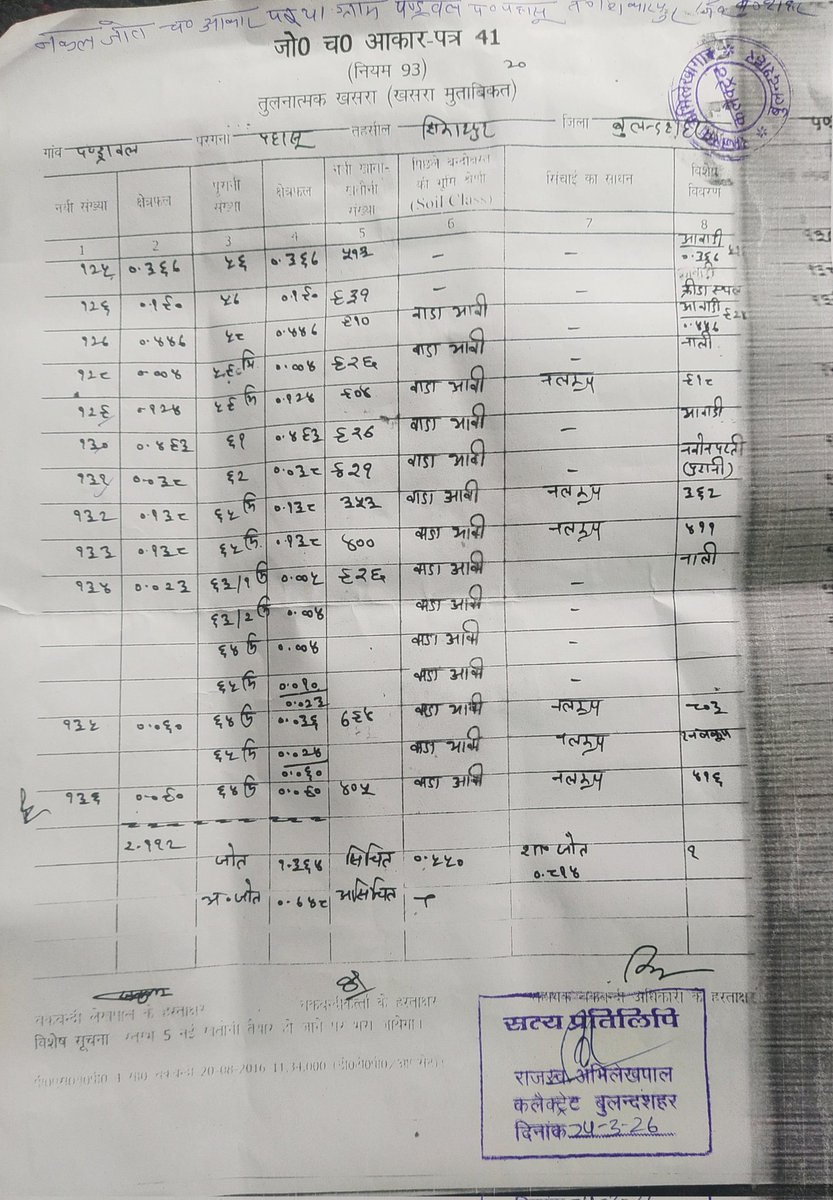 नकल जोत च० आकार पत्र ग्राम पण्ड्रावल प० पहासू
जो0 च0 आकार-पत्र 41
(नियम 93)
२०
तुलनात्मक खसरा (खसरा मुताबिकत)
गांव पण्ड्रावल परगना पहासू तहसील शिकारपुर जिला बुलन्दशहर
नयी संख्या क्षेत्रफल पुरानी संख्या क्षेत्रफल नयी खाता-खतौनी संख्या पिछले बन्दोबस्त की भूमि श्रेणी (Soil Class) सिंचाई का साधन विशेष विवरण
1 2 3 4 5 6 7 8
१२५ ०.३६७ ५६ ०.३६७ ५१३ – – आबादी ०.३६७
१२६ ०.१९० ५७ ०.१९० ९३१ – – क्रीडा स्थल
१२७ ०.४४७ ५८ ०.४४७ ९१० वाडा आवी – आबादी ०.४४७
१२८ ०.००४ ५९ मि ०.००४ ९२६ वाडा आवी – नाली
१२९ ०.१२४ ५९ मि ०.१२४ ९०४ वाडा आवी नलकूप ९१८
१३० ०.४९३ ६१ ०.४९३ ९२७ वाडा आवी – आबादी
१३१ ०.०३८ ६२ ०.०३८ ४२१ वाडा आवी – नवीन परती (पुरानी)
१३२ ०.१३८ ६५ मि ०.१३८ ३५३ वाडा आवी नलकूप ३६२
१३३ ०.१३८ ६५ मि ०.१३८ ४०० वाडा आवी नलकूप ४११
१३४ ०.०२३ ६३/१ मि ०.००५ ९२६ वाडा आवी – नाली
६३/२ मि ०.००४ वाडा आवी –
६४ मि ०.००४ वाडा आवी –
६५ मि ०.०१० वाडा आवी –
०.०२३
१३५ ०.०६० ६४ मि ०.०३६ ७९५ वाडा आवी नलकूप ८०३
६५ मि ०.०२४ वाडा आवी नलकूप
०.०६०
१३६ ०.०९० ६४ मि ०.०९० ४०५ वाडा आवी नलकूप ४१६
२.११२
जोत १.३६४ सिंचित ०.५५० शा० जोत ०.८१४ १
अ०जोत ०.७४८ असिंचित –
चकबन्दी लेखपाल के हस्ताक्षर चकबन्दीकर्ता के हस्ताक्षर सहायक चकबन्दी अधिकारी के हस्ताक्षर
विशेष सूचना स्तम्भ 5 नई खतौनी तैयार हो जाने पर भरा जायेगा।
20-08-2016
सत्य प्रतिलिपि
राजस्व अभिलेखपाल
कलैक्ट्रेट बुलन्दशहर
दिनांक 24-3-26